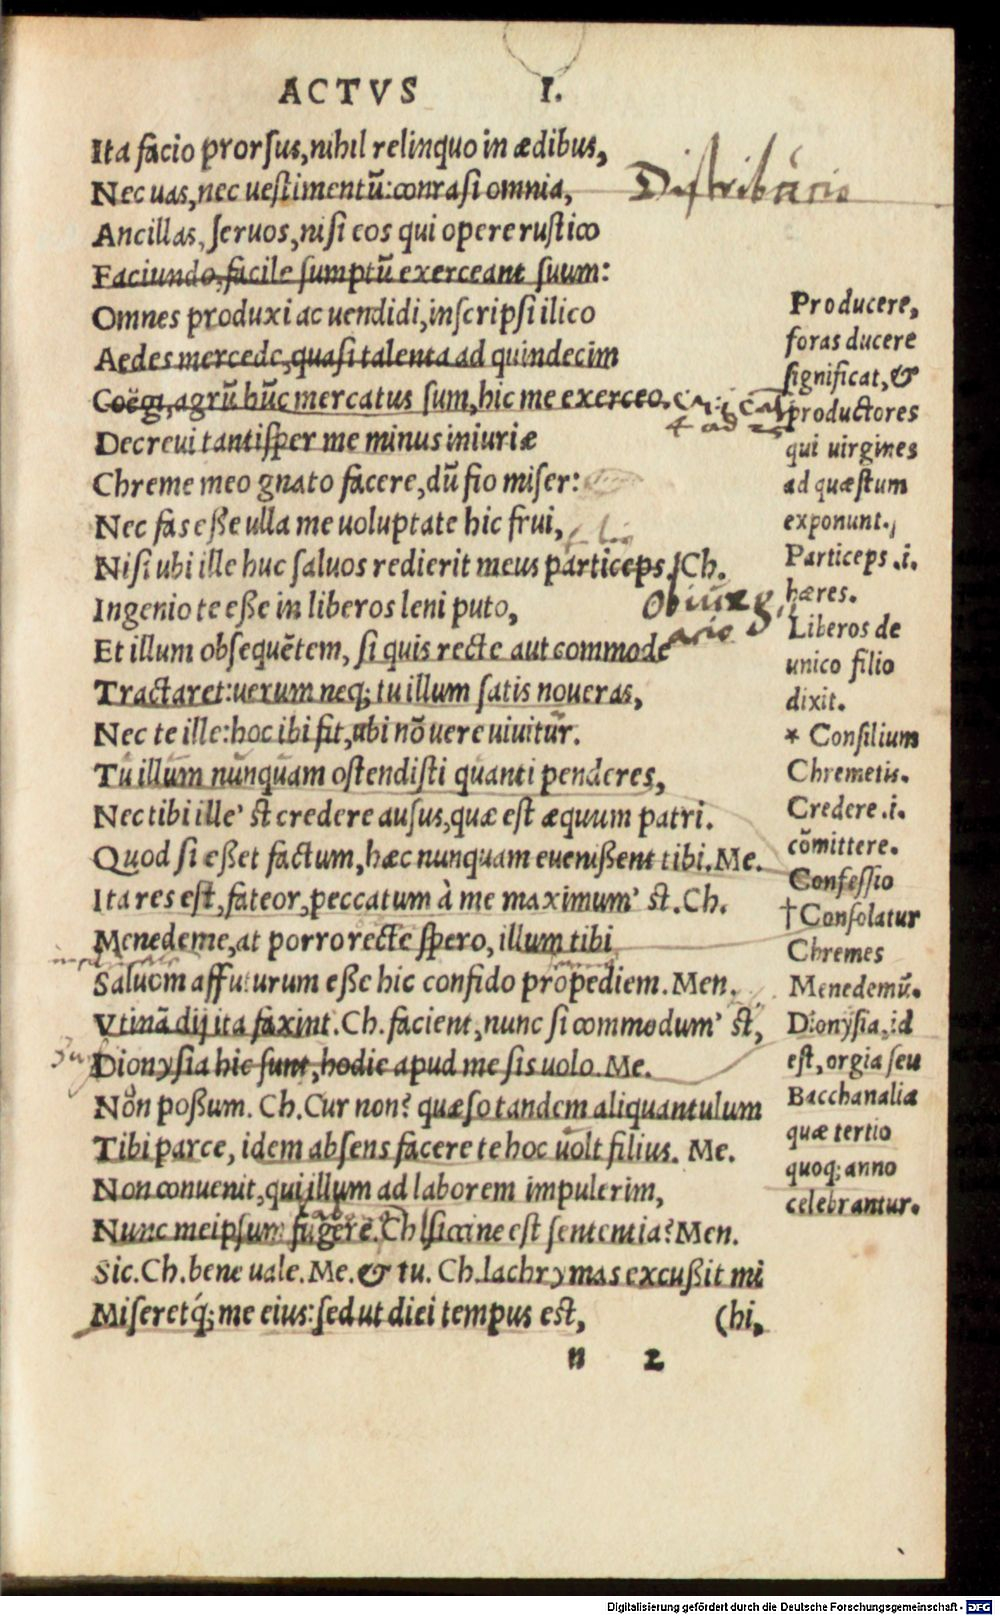 ACTVS I.
Ita facio prorsus, nihil relinquo in ædibus,
Nec uas, nec uestimentū: conrasi omnia,
Distributio
Ancillas, seruos, nisi eos qui opere rustico
Faciundo, facile sumptū exerceant suum:
Omnes produxi ac uendidi, inscripsi ilico
Aedes mercede, quasi talenta ad quindecim
Coëgi, agrū hūc mercatus sum, hic me exerceo.
Decreui tantisper me minus iniuriæ
Chreme meo gnato facere, dū fio miser:
Nec fas eße ulla me uoluptate hic frui,
filio
Nisi ubi ille huc saluos redierit meus particeps. Ch.
Ingenio te eße in liberos leni puto,
Obiurg
atio
Et illum obsequētem, si quis recte aut commode
Tractaret: uerum neq; tu illum satis noueras,
Nec te ille: hoc ibi fit, ubi nō uere uiuitur.
Tu illum nunquam ostendisti quanti penderes,
Nec tibi ille' st credere ausus, quæ est æquum patri.
Quod si eßet factum, hæc nunquam eueniſßent tibi. Me.
Ita res est, fateor, peccatum à me maximum' st. Ch.
Menedeme, at porro recte spero, illum tibi
Saluom affuturum eße hic confido propediem. Men.
Vtinā dij ita faxint. Ch. facient, nunc si commodum' st,
Dionysia hic sunt, hodie apud me sis uolo. Me.
Non poßum. Ch. Cur non? quæso tandem aliquantulum
Tibi parce, idem absens facere te hoc uolt filius. Me.
Non conuenit, qui illum ad laborem impulerim,
Nunc meipsum fugere. Ch. siccine est sententia? Men.
Sic. Ch. bene uale. Me. & tu. Ch. lachrymas excußit mi
Miseretq́; me eius: sed ut diei tempus est, (hi,
n 2
Producere,
foras ducere
significat, &
productores
qui uirgines
ad quæstum
exponunt.
Particeps .i.
hæres.
Liberos de
unico filio
dixit.
* Consilium
Chremetis.
Credere .i.
cōmittere.
Confessio
† Consolatur
Chremes
Menedemū.
Dionysia, id
est, orgia seu
Bacchanalia
quæ tertio
quoq; anno
celebrantur.
Digitalisierung gefördert durch die Deutsche Forschungsgemeinschaft - DFG